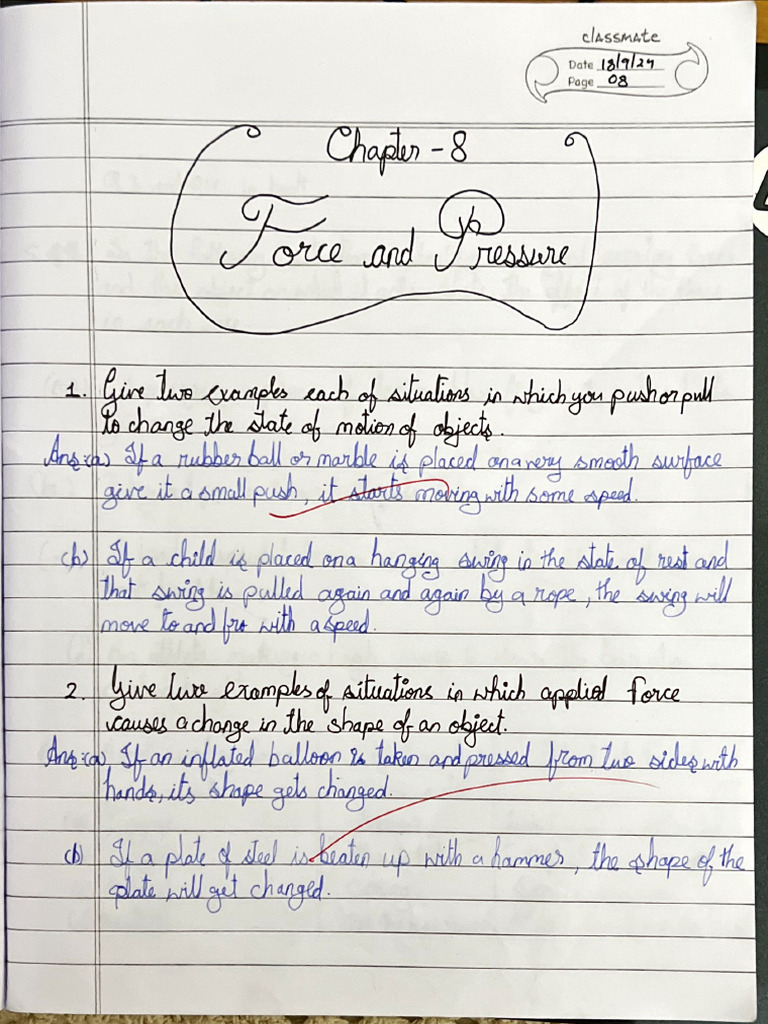 classmate
Date 18/9/24
Page 08
Chapter - 8
Force and Pressure
1. Give two examples each of situations in which you push or pull
to change the state of motion of objects.
Ans:(a) If a rubber ball or marble is placed on a very smooth surface
give it a small push, it starts moving with some speed.
(b) If a child is placed on a hanging swing in the state of rest and
that swing is pulled again and again by a rope, the swing will
move to and fro with a speed.
2. Give two examples of situations in which applied force
causes a change in the shape of an object.
Ans:(a) If an inflated balloon is taken and pressed from two sides with
hands, its shape gets changed.
(b) If a plate of steel is beaten up with a hammer, the shape of the
plate will get changed.